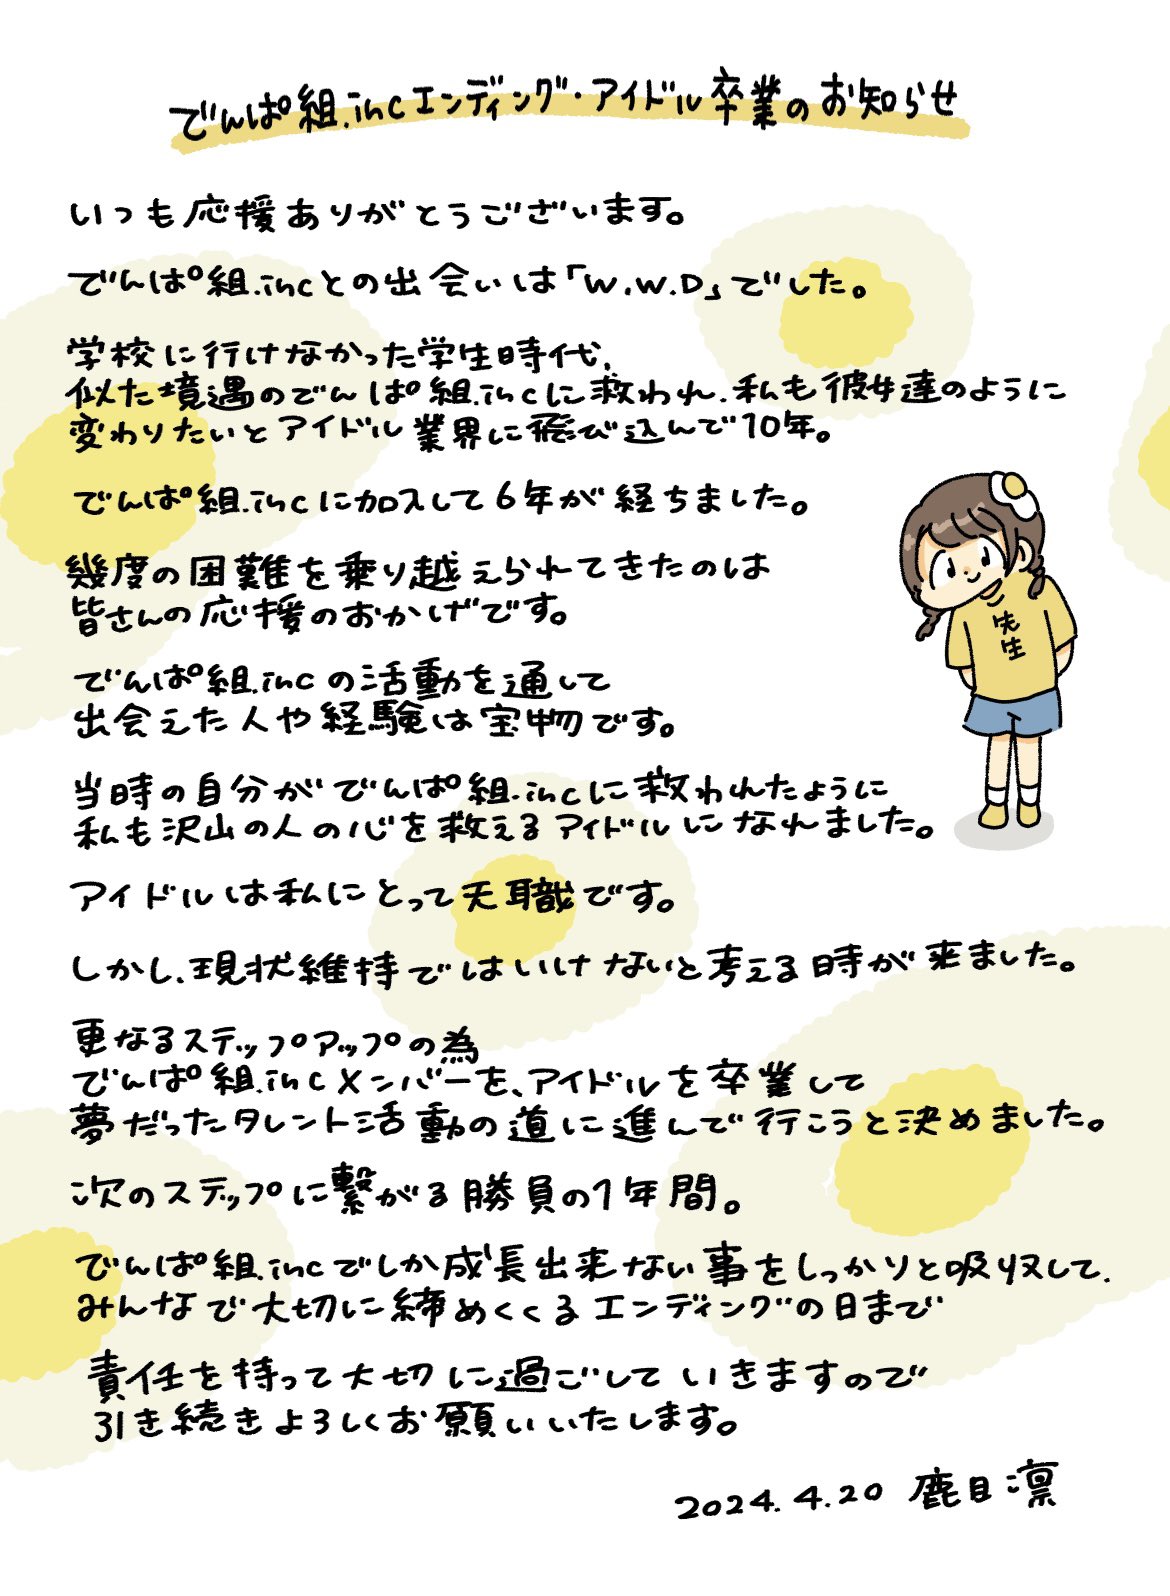 でんぱ組.incエンディング・アイドル卒業のお知らせ
いつも応援ありがとうございます。
でんぱ組.incとの出会いは「W.W.D」でした。
学校に行けなかった学生時代、
似た境遇のでんぱ組.incに救われ、私も彼女達のように
変わりたいとアイドル業界に飛び込んで10年。
でんぱ組.incに加入して6年が経ちました。
幾度の困難を乗り越えられてきたのは
皆さんの応援のおかげです。
でんぱ組.incの活動を通して
出会えた人や経験は宝物です。
先生
当時の自分がでんぱ組.incに救われたように
私も沢山の人の心を救えるアイドルになれました。
アイドルは私にとって天職です。
しかし、現状維持ではいけないと考える時が来ました。
更なるステップアップの為
でんぱ組.incメンバーを、アイドルを卒業して
夢だったタレント活動の道に進んで行こうと決めました。
次のステップに繋がる勝負の1年間。
でんぱ組.incでしか成長出来ない事をしっかりと吸収して、
みんなで大切に締めくくるエンディングの日まで
責任を持って大切に過ごしていきますので
引き続きよろしくお願いいたします。
2024.4.20 鹿目凛